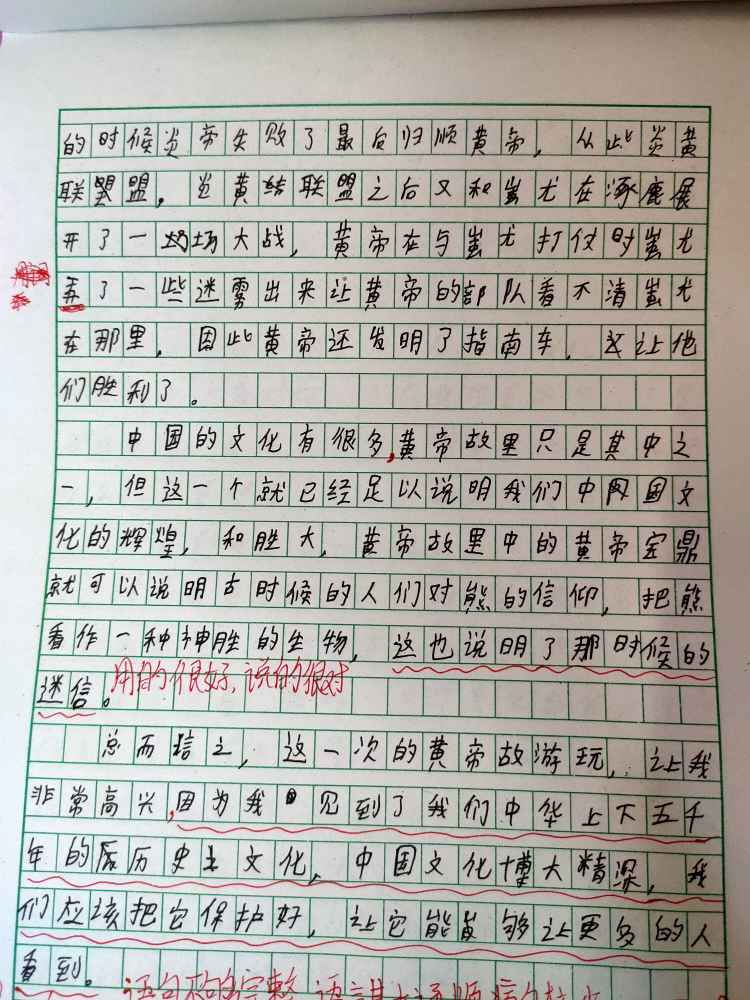 的时候炎帝失败了最后归顺黄帝，从此炎黄
联盟盟，炎黄结联盟之后又和蚩尤在涿鹿展
开了一场场大战，黄帝在与蚩尤打仗时蚩尤
弄了一些迷雾出来让黄帝的部队看不清蚩尤
在那里，因此黄帝还发明了指南车，这让他
们胜利了。
中国的文化有很多，黄帝故里只是其中之
一，但这一个就已经足以说明我们中国文
化的辉煌，和胜大，黄帝故里中的黄帝宝鼎
就可以说明古时候的人们对熊的信仰，把熊
看作一种神胜的生物，这也说明了那时候的
迷信。用的很好，说的很对
总而之，这一次的黄帝故游玩，让我
非常高兴，因为我见到了我们中华上下五千
年的历史文化，中国文化博大精深，我
们应该把它保护好，让它能够让更多的人
看到。
语句不够完整